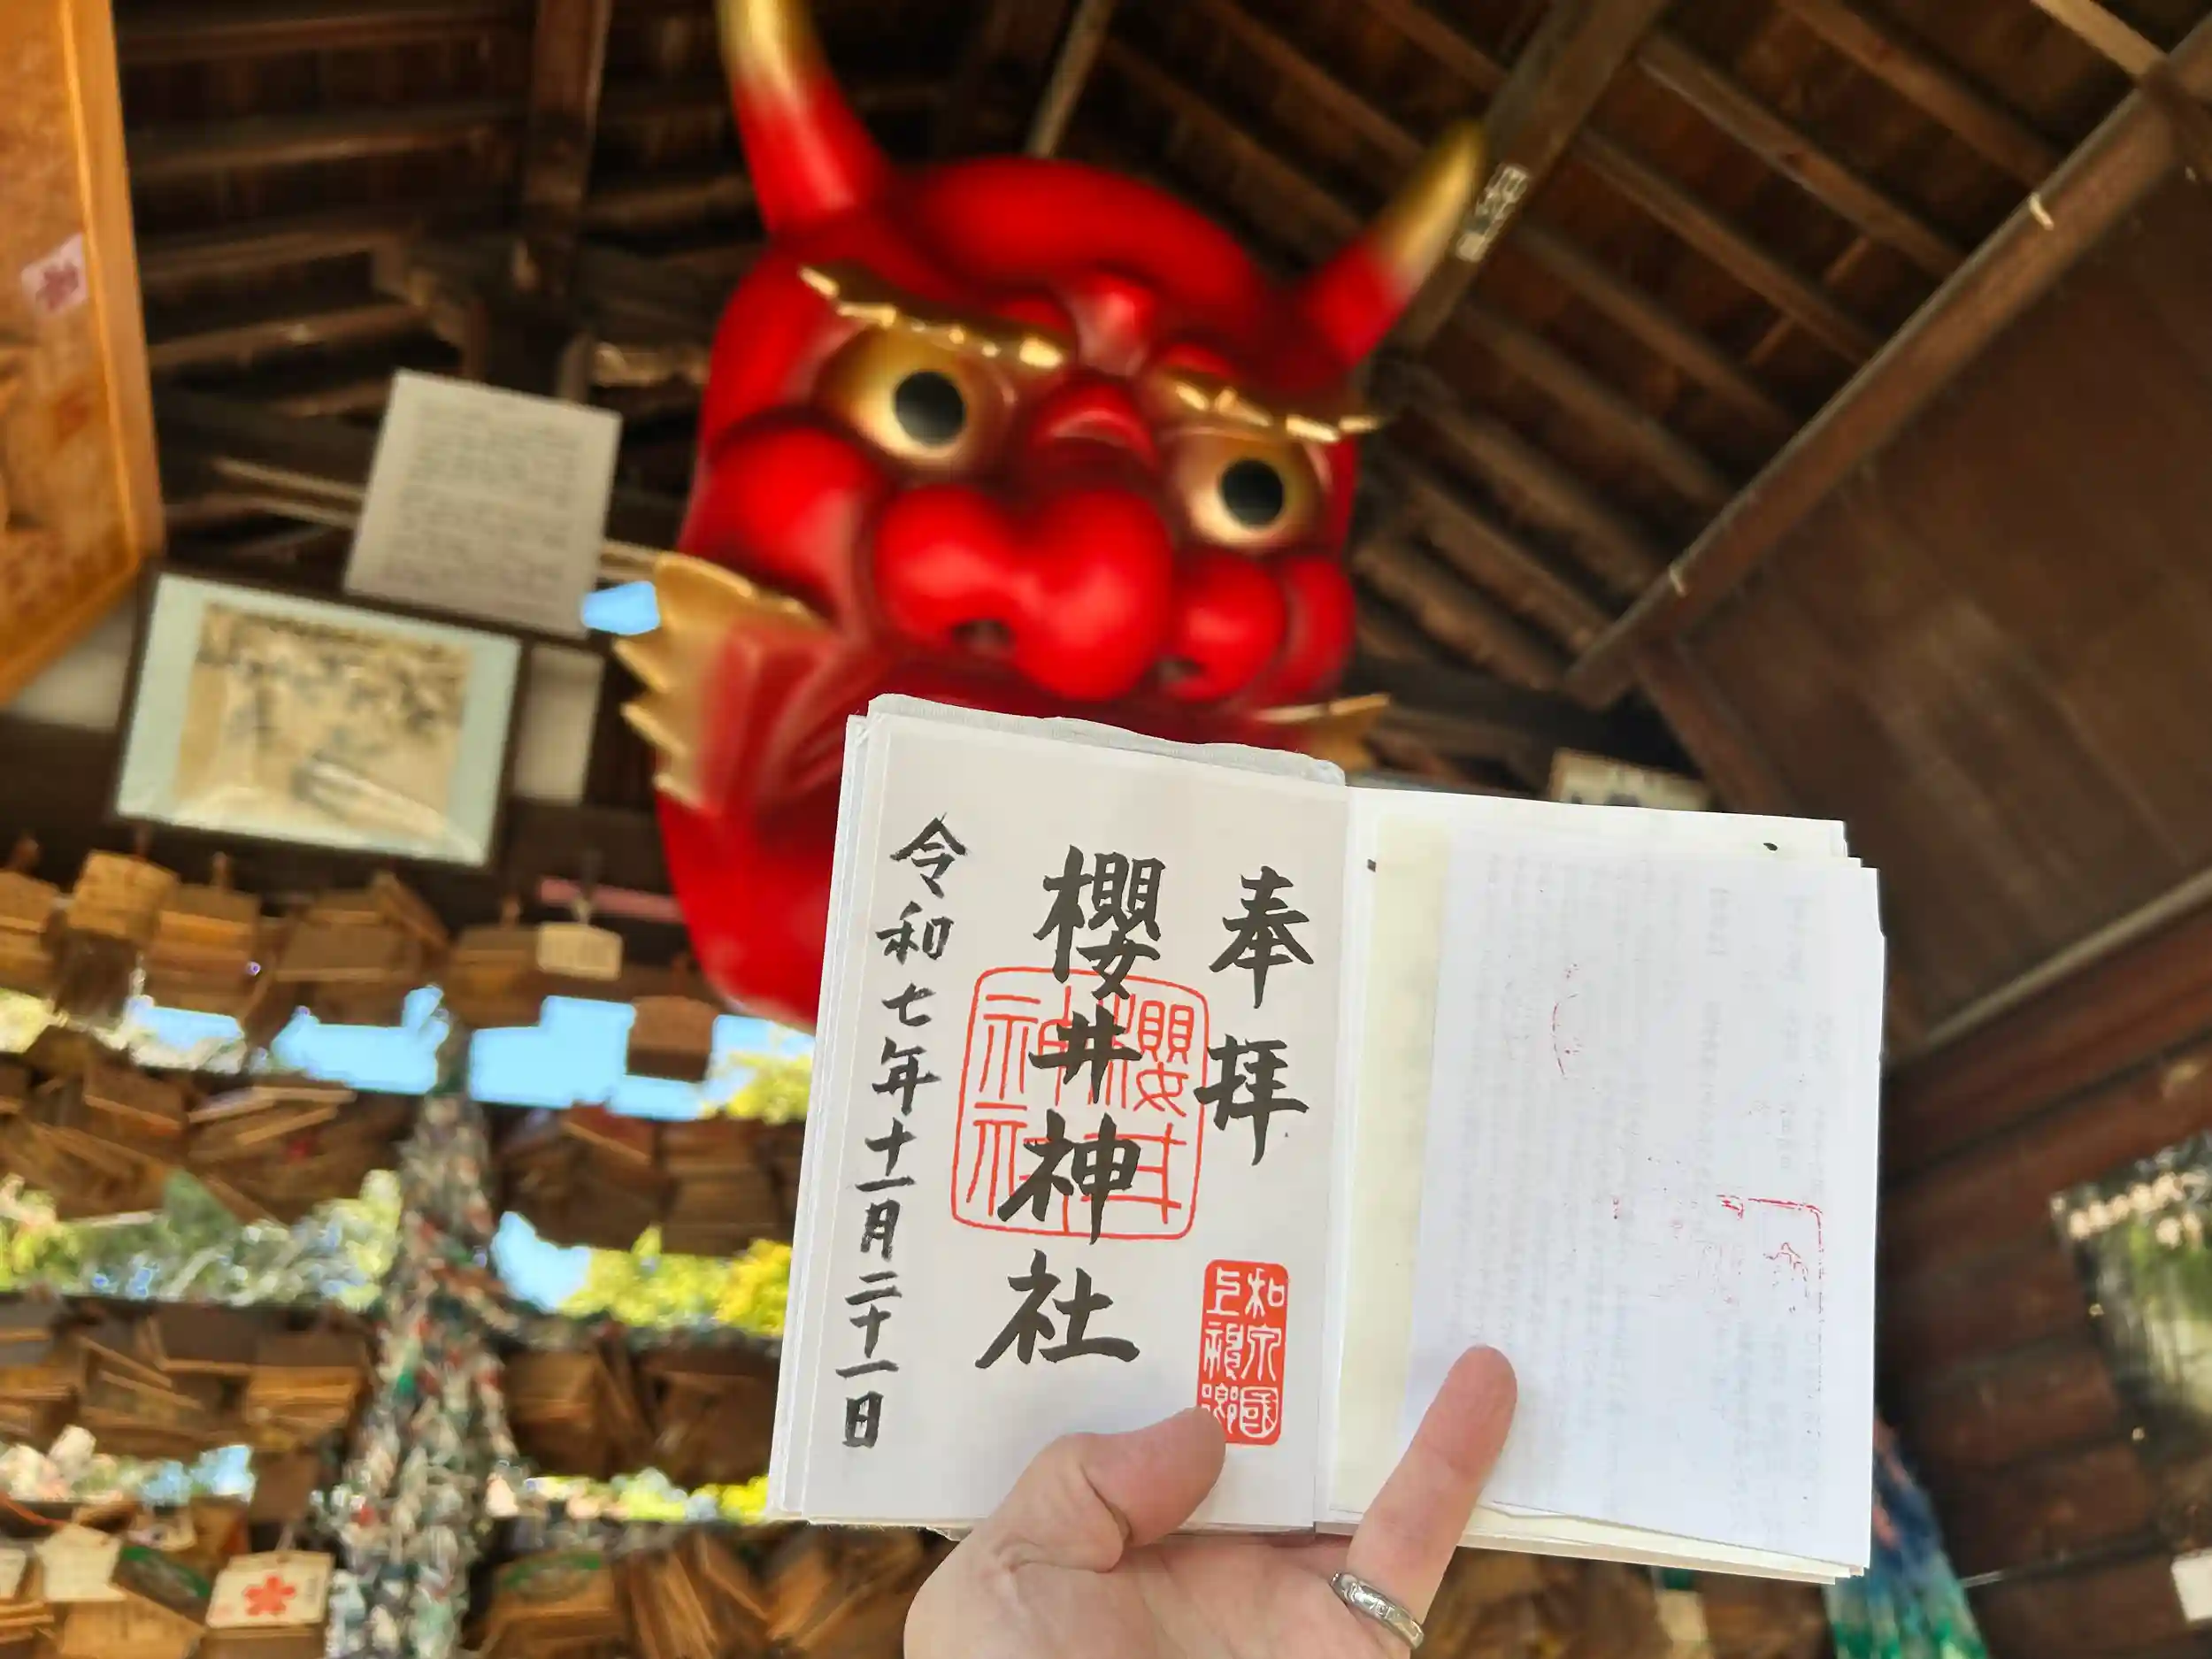 奉拝
櫻井神社
令和七年十一月二十一日
櫻井
神社
和泉國
上神郷